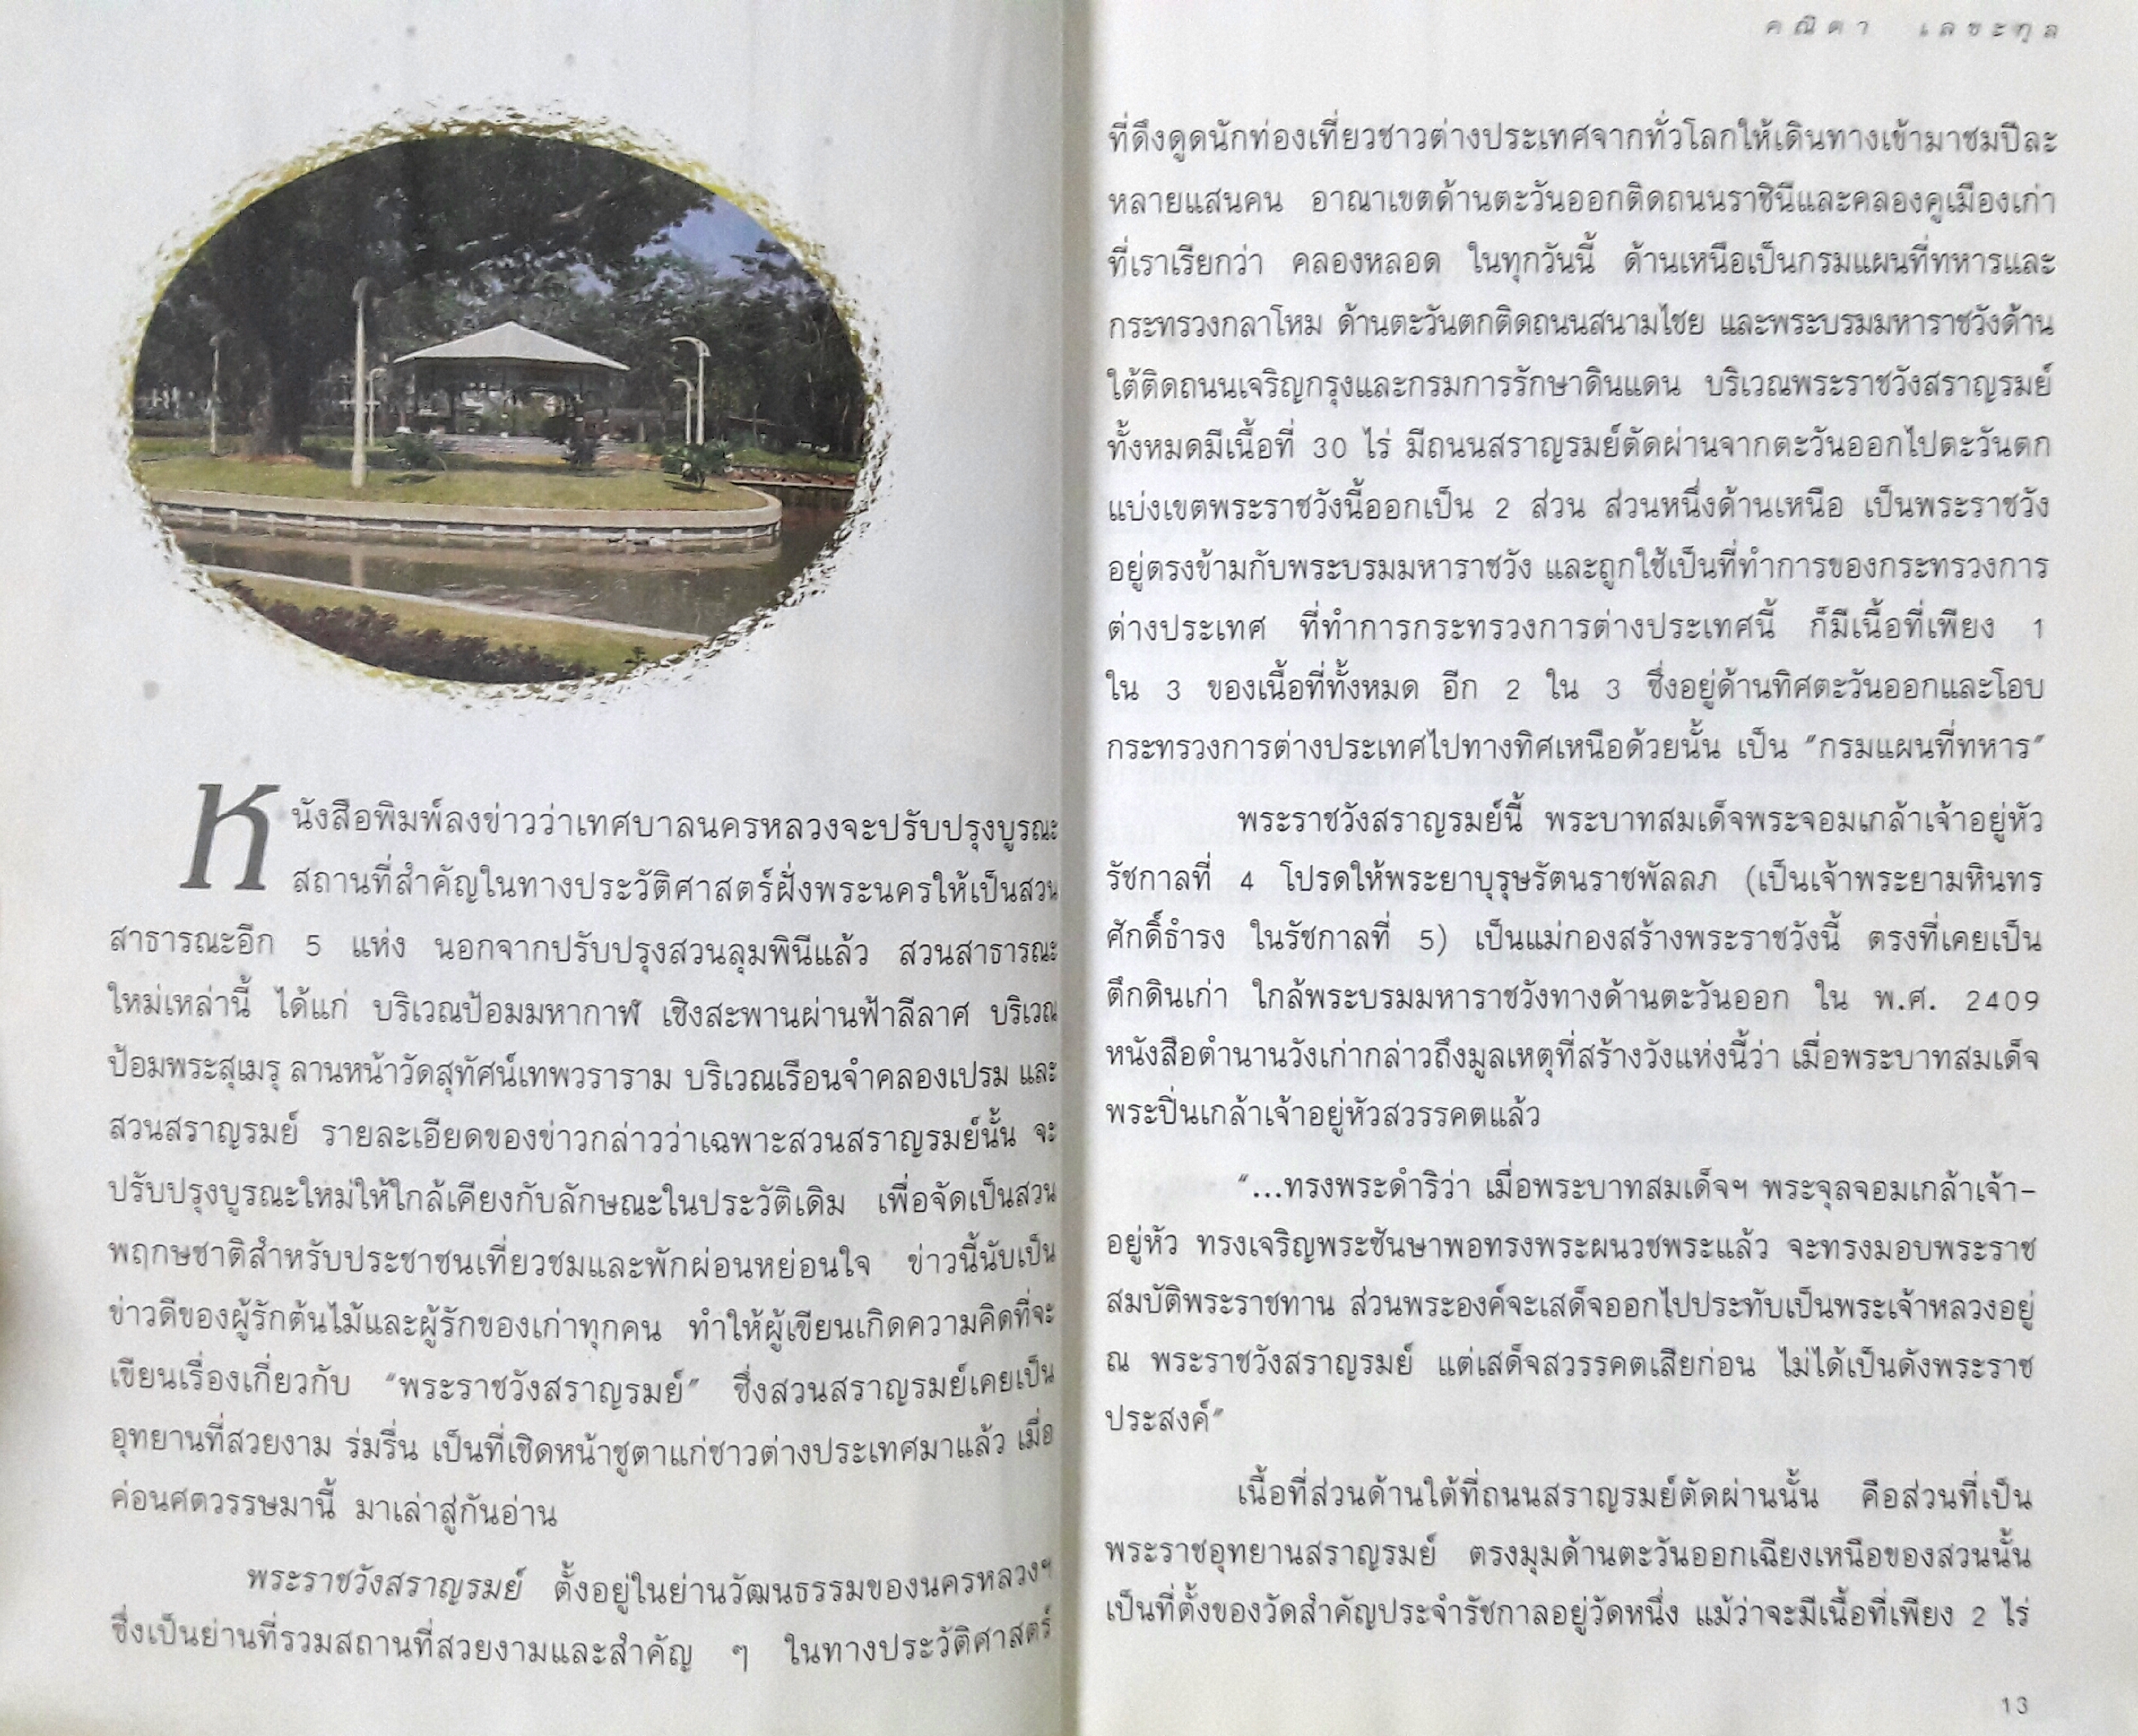 หนังสือพิมพ์ลงข่าวว่าเทศบาลนครหลวงจะปรับปรุงบูรณะ
สถานที่สำคัญในทางประวัติศาสตร์ฝั่งพระนครให้เป็นสวน
สาธารณะอีก 5 แห่ง นอกจากปรับปรุงสวนลุมพินีแล้ว สวนสาธารณะ
ใหม่เหล่านี้ ได้แก่ บริเวณป้อมมหากาฬ เชิงสะพานผ่านฟ้าลีลาศ บริเวณ
ป้อมพระสุเมรุ ลานหน้าวัดสุทัศน์เทพวราราม บริเวณเรือนจำคลองเปรม และ
สวนสราญรมย์ รายละเอียดของข่าวกล่าวว่าเฉพาะสวนสราญรมย์นั้น จะ
ปรับปรุงบูรณะใหม่ให้ใกล้เคียงกับลักษณะในประวัติเดิม เพื่อจัดเป็นสวน
พฤกษชาติสำหรับประชาชนเที่ยวชมและพักผ่อนหย่อนใจ ข่าวนี้นับเป็น
ข่าวดีของผู้รักต้นไม้และผู้รักของเก่าทุกคน ทำให้ผู้เขียนเกิดความคิดที่จะ
เขียนเรื่องเกี่ยวกับ “พระราชวังสราญรมย์” ซึ่งสวนสราญรมย์เคยเป็น
อุทยานที่สวยงาม ร่มรื่น เป็นที่เชิดหน้าชูตาแก่ชาวต่างประเทศมาแล้ว เมื่อ
ค่อนศตวรรษมานี้ มาเล่าสู่กันอ่าน
พระราชวังสราญรมย์ ตั้งอยู่ในย่านวัฒนธรรมของนครหลวงฯ
ซึ่งเป็นย่านที่รวมสถานที่สวยงามและสำคัญ ๆ ในทางประวัติศาสตร์
คณิตา เลขะกุล
ที่ดึงดูดนักท่องเที่ยวชาวต่างประเทศจากทั่วโลกให้เดินทางเข้ามาชมปีละ
หลายแสนคน อาณาเขตด้านตะวันออกติดถนนราชินีและคลองคูเมืองเก่า
ที่เราเรียกว่า คลองหลอด ในทุกวันนี้ ด้านเหนือเป็นกรมแผนที่ทหารและ
กระทรวงกลาโหม ด้านตะวันตกติดถนนสนามไชย และพระบรมมหาราชวังด้าน
ใต้ติดถนนเจริญกรุงและกรมการรักษาดินแดน บริเวณพระราชวังสราญรมย์
ทั้งหมดมีเนื้อที่ 30 ไร่ มีถนนสราญรมย์ตัดผ่านจากตะวันออกไปตะวันตก
แบ่งเขตพระราชวังนี้ออกเป็น 2 ส่วน ส่วนหนึ่งด้านเหนือ เป็นพระราชวัง
อยู่ตรงข้ามกับพระบรมมหาราชวัง และถูกใช้เป็นที่ทำการของกระทรวงการ
ต่างประเทศ ที่ทำการกระทรวงการต่างประเทศนี้ ก็มีเนื้อที่เพียง 1
ใน 3 ของเนื้อที่ทั้งหมด อีก 2 ใน 3 ซึ่งอยู่ด้านทิศตะวันออกและโอบ
กระทรวงการต่างประเทศไปทางทิศเหนือด้วยนั้น เป็น “กรมแผนที่ทหาร”
พระราชวังสราญรมย์นี้ พระบาทสมเด็จพระจอมเกล้าเจ้าอยู่หัว
รัชกาลที่ 4 โปรดให้พระยาบุรุษรัตนราชพัลลภ (เป็นเจ้าพระยามหินทร
ศักดิ์ธำรง ในรัชกาลที่ 5) เป็นแม่กองสร้างพระราชวังนี้ ตรงที่เคยเป็น
ตึกดินเก่า ใกล้พระบรมมหาราชวังทางด้านตะวันออก ใน พ.ศ. 2409
หนังสือตำนานวังเก่ากล่าวถึงมูลเหตุที่สร้างวังแห่งนี้ว่า เมื่อพระบาทสมเด็จ
พระปิ่นเกล้าเจ้าอยู่หัวสวรรคตแล้ว
“...ทรงพระดำริว่า เมื่อพระบาทสมเด็จฯ พระจุลจอมเกล้าเจ้า-
อยู่หัว ทรงเจริญพระชันษาพอทรงพระผนวชพระแล้ว จะทรงมอบพระราช
สมบัติพระราชทาน ส่วนพระองค์จะเสด็จออกไปประทับเป็นพระเจ้าหลวงอยู่
ณ พระราชวังสราญรมย์ แต่เสด็จสวรรคตเสียก่อน ไม่ได้เป็นดังพระราช
ประสงค์”
เนื้อที่ส่วนด้านใต้ที่ถนนสราญรมย์ตัดผ่านนั้น คือส่วนที่เป็น
พระราชอุทยานสราญรมย์ ตรงมุมด้านตะวันออกเฉียงเหนือของสวนนั้น
เป็นที่ตั้งของวัดสำคัญประจำรัชกาลอยู่วัดหนึ่ง แม้ว่าจะมีเนื้อที่เพียง 2 ไร่
13